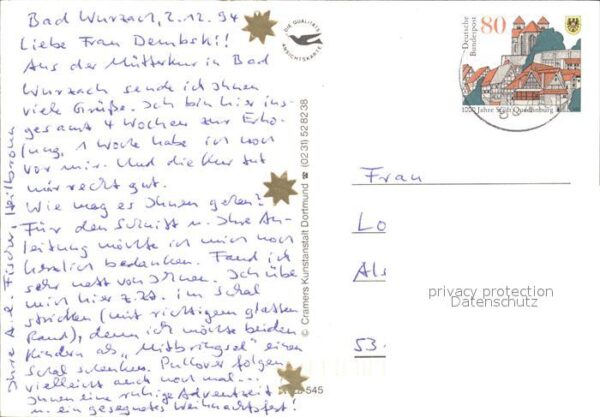 Bad Wurzach, 2.12.94
Liebe Frau Dembski!
Aus der Mütterkur in Bad
Wurzach sende ich Ihnen
viele Grüße. Ich bin hier ins-
gesamt 4 Wochen zur Erho-
lung, 1 Woche habe ich noch
vor mir. Und die Kur tut
mir recht gut.
Wie mag es Ihnen gehen?
Für den Schnitt u. Ihre An-
leitung möchte ich mich noch
herzlich bedanken. Fand ich
sehr nett von Ihnen. Ich übe
mich hier z.Zt. im Schal
stricken (mit richtigem glatten
Rand), denn ich möchte beiden
Kindern als "Mitbringsel" einen
Schal schenken. Pullover folgen
vielleicht auch noch mal...
Ihnen eine ruhige Adventszeit
u. ein gesegnetes Weihnachtsfest!
Ihre A. Fischer, Heilbronn
DIE QUALITÄTS
ANSICHTSKARTE
© Cramers Kunstanstalt Dortmund ☎ (0231) 52 82 38
545
Deutsche
Bundespost
80
1000 Jahre Stadt Quedlinburg
Frau
Lo
Als
53
privacy protection
Datenschutz